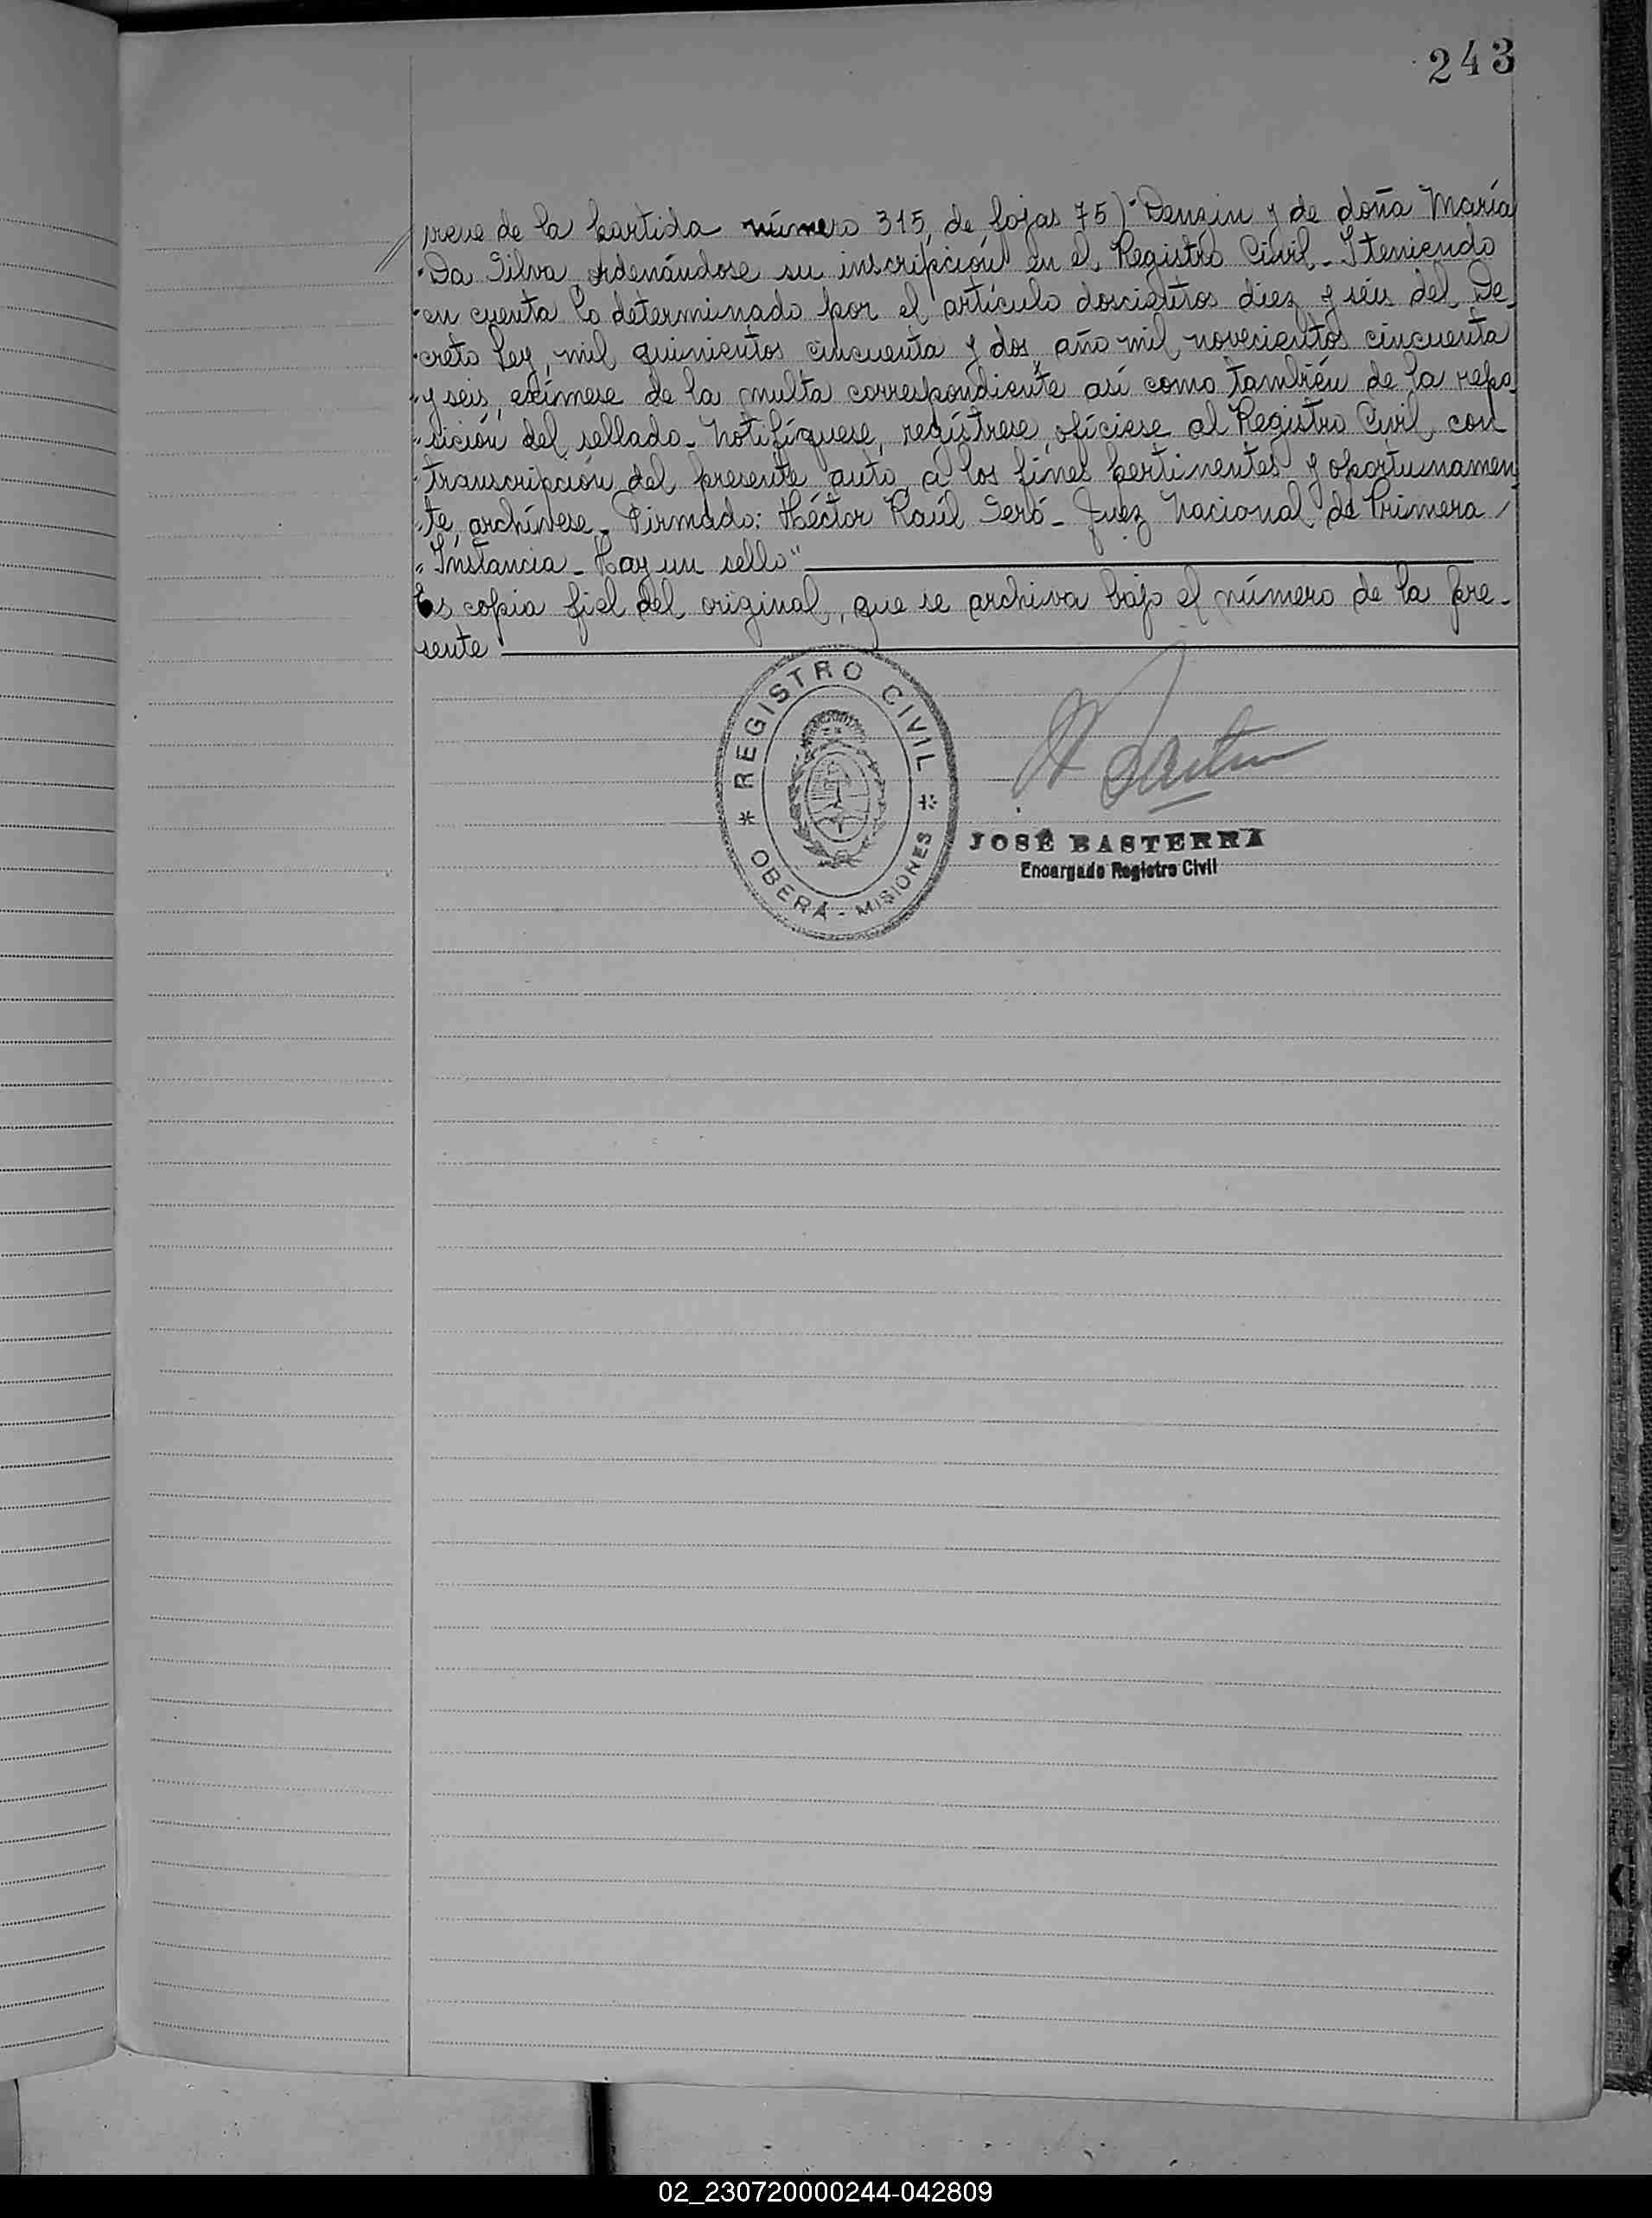 243
viene de la partida número 315, de fojas 75) "Denzin y de doña María
"Da Silva, ordenándose su inscripción en el Registro Civil_ Y teniendo
"en cuenta lo determinado por el artículo doscientos diez y séis del De_
"creto Ley, mil quinientos cincuenta y dos, año mil novecientos cincuenta
"y seis, exímese de la multa correspondiente así como también de la repo_
"sición del sellado_ Notifíquese, regístrese, ofíciese al Registro Civil con
"transcripción del presente auto, a los fines pertinentes y oportunamen
"te, archívese_ Firmado: Héctor Raúl Seró_ Juez Nacional de Primera
"Instancia_ Hay un sello"
Es copia fiel del original, que se archiva bajo el número de la pre_
sente
* REGISTRO CIVIL *
OBERÁ - MISIONES
JOSÉ BASTERRA
Encargado Registro Civil
02_230720000244-042809